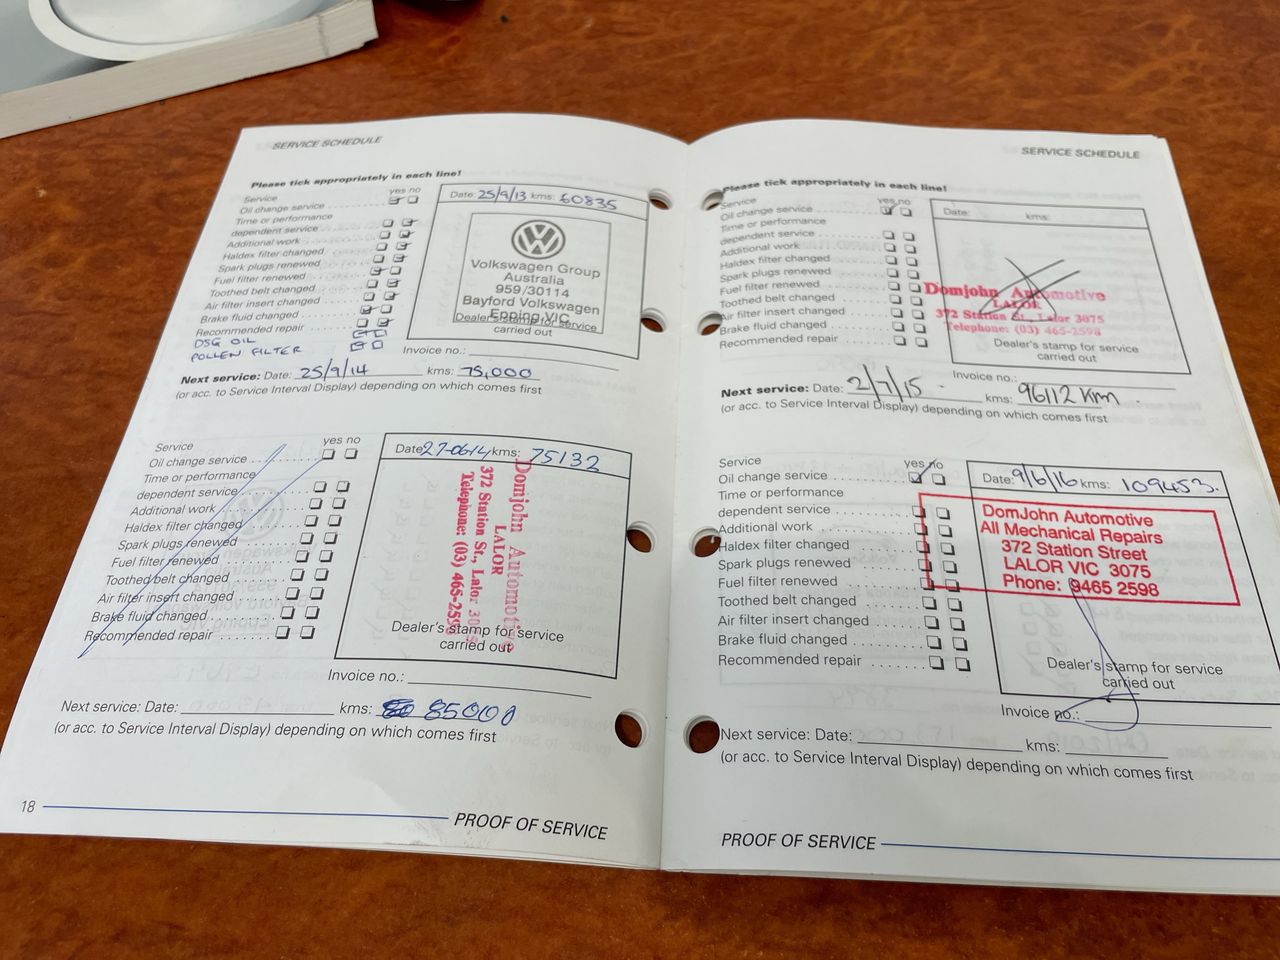 SERVICE SCHEDULE
Please tick appropriately in each line!
yes no
Service
Oil change service
Time or performance
dependent service
Additional work
Haldex filter changed
Spark plugs renewed
Fuel filter renewed
Toothed belt changed
Air filter insert changed
Brake fluid changed
Recommended repair
DSG OIL
POLLEN FILTER
Date: 25/9/13 kms: 60835
Volkswagen Group
Australia
959/30114
Bayford Volkswagen
Epping VIC
Dealer's stamp for service
carried out
Invoice no.:
Next service: Date: 25/9/14 kms: 75,000
(or acc. to Service Interval Display) depending on which comes first
Service yes no
Oil change service
Time or performance
dependent service
Additional work
Haldex filter changed
Spark plugs renewed
Fuel filter renewed
Toothed belt changed
Air filter insert changed
Brake fluid changed
Recommended repair
Date: 27-06-14 kms: 75132
Domjohn Automotive
LALOR
372 Station St., Lalor 3075
Telephone: (03) 465-2598
Dealer's stamp for service
carried out
Invoice no.:
Next service: Date: kms: 85000
(or acc. to Service Interval Display) depending on which comes first
18
PROOF OF SERVICE
SERVICE SCHEDULE
Please tick appropriately in each line!
Service yes no
Oil change service
Time or performance
dependent service
Additional work
Haldex filter changed
Spark plugs renewed
Fuel filter renewed
Toothed belt changed
Air filter insert changed
Brake fluid changed
Recommended repair
Date: kms:
Domjohn Automotive
LALOR
372 Station St., Lalor 3075
Telephone: (03) 465-2598
Dealer's stamp for service
carried out
Invoice no.:
Next service: Date: 2/7/15 kms: 96112 Km
(or acc. to Service Interval Display) depending on which comes first
Service yes no
Oil change service
Time or performance
dependent service
Additional work
Haldex filter changed
Spark plugs renewed
Fuel filter renewed
Toothed belt changed
Air filter insert changed
Brake fluid changed
Recommended repair
Date: 9/6/16 kms: 109453.
DomJohn Automotive
All Mechanical Repairs
372 Station Street
LALOR VIC 3075
Phone: 9465 2598
Dealer's stamp for service
carried out
Invoice no.:
Next service: Date: kms:
(or acc. to Service Interval Display) depending on which comes first
PROOF OF SERVICE